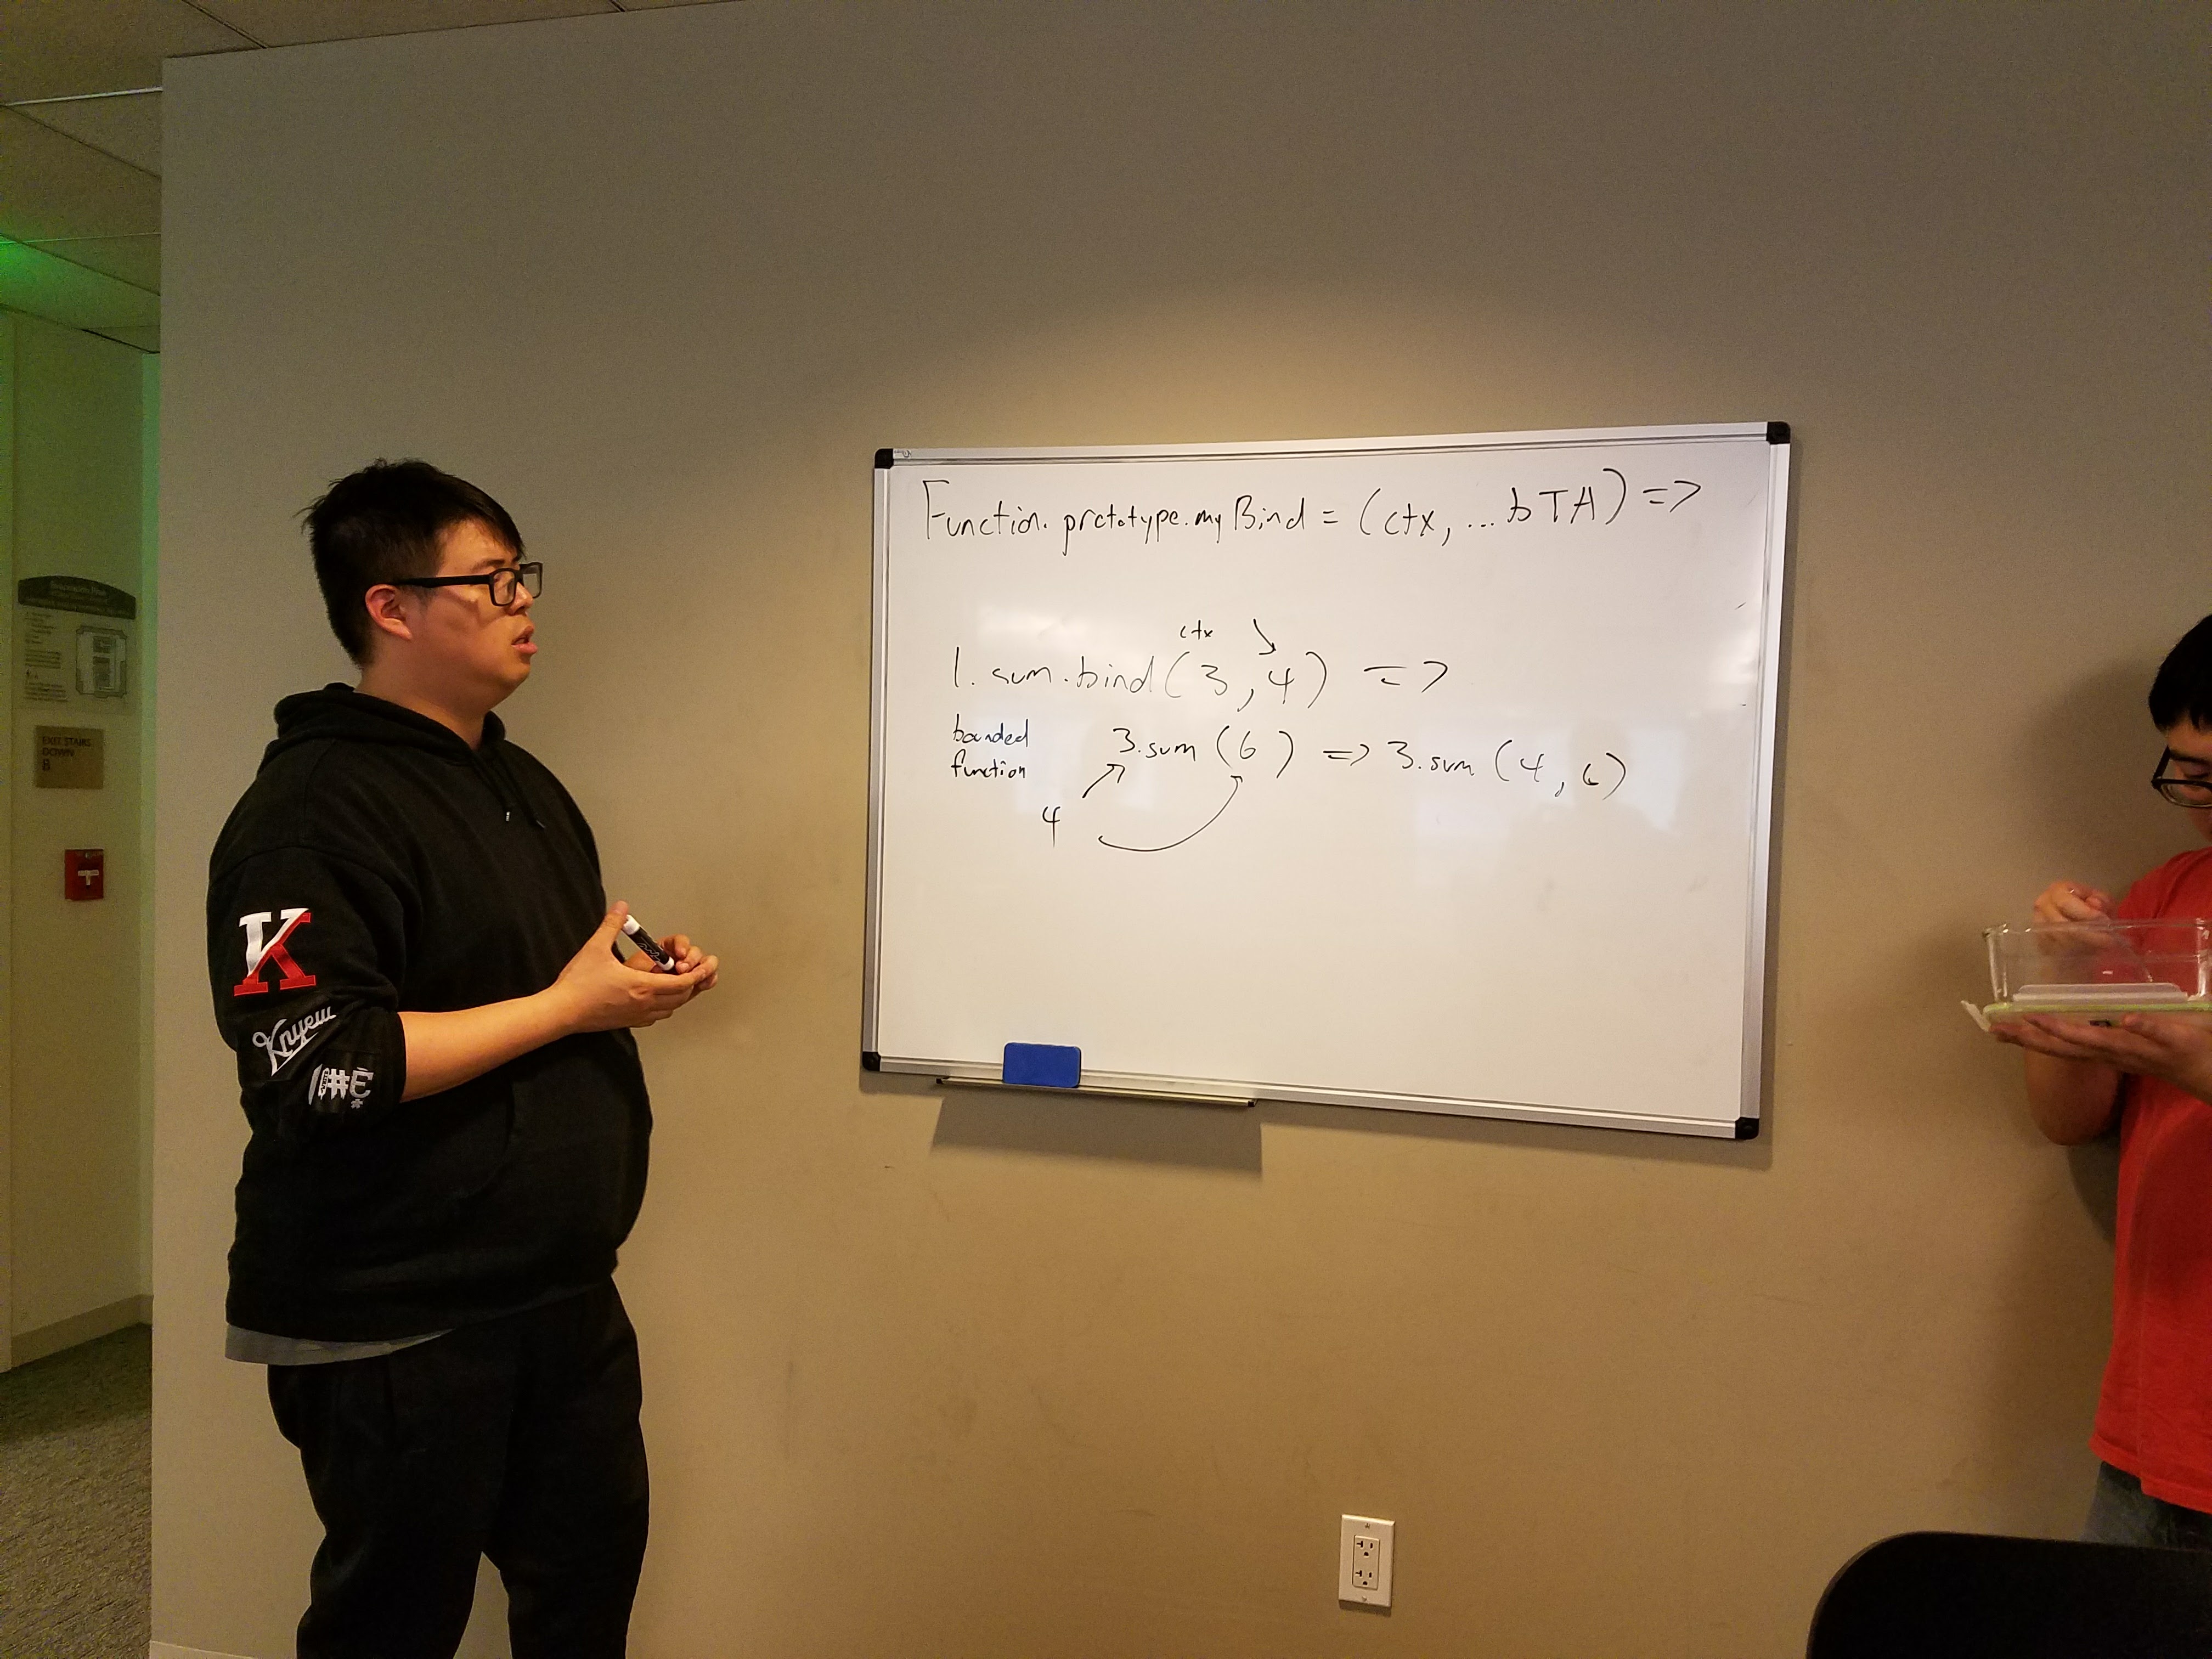 Function.prototype.myBind = (ctx, ...bTA) =>
ctx
1.sum.bind(3,4) =>
bounded
function
3.sum (6) => 3.sum (4,6)
4
EXIT STAIRS
DOWN
B
K
Knyew